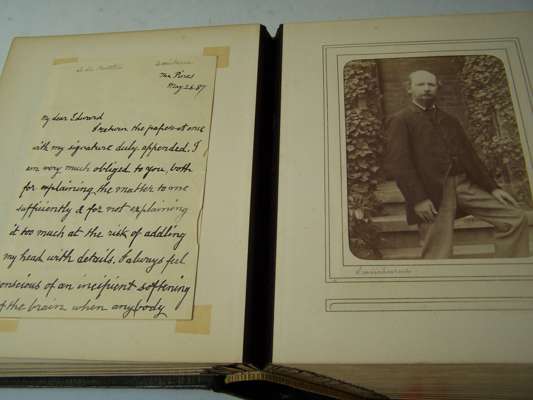 The Pines
May 26. 87
My dear Edward
I return the papers at once
with my signature duly appended. I
am very much obliged to you, both
for explaining the matter to me
sufficiently & for not explaining
it too much at the risk of addling
my head with details. I always feel
conscious of an incipient softening
of the brain when anybody